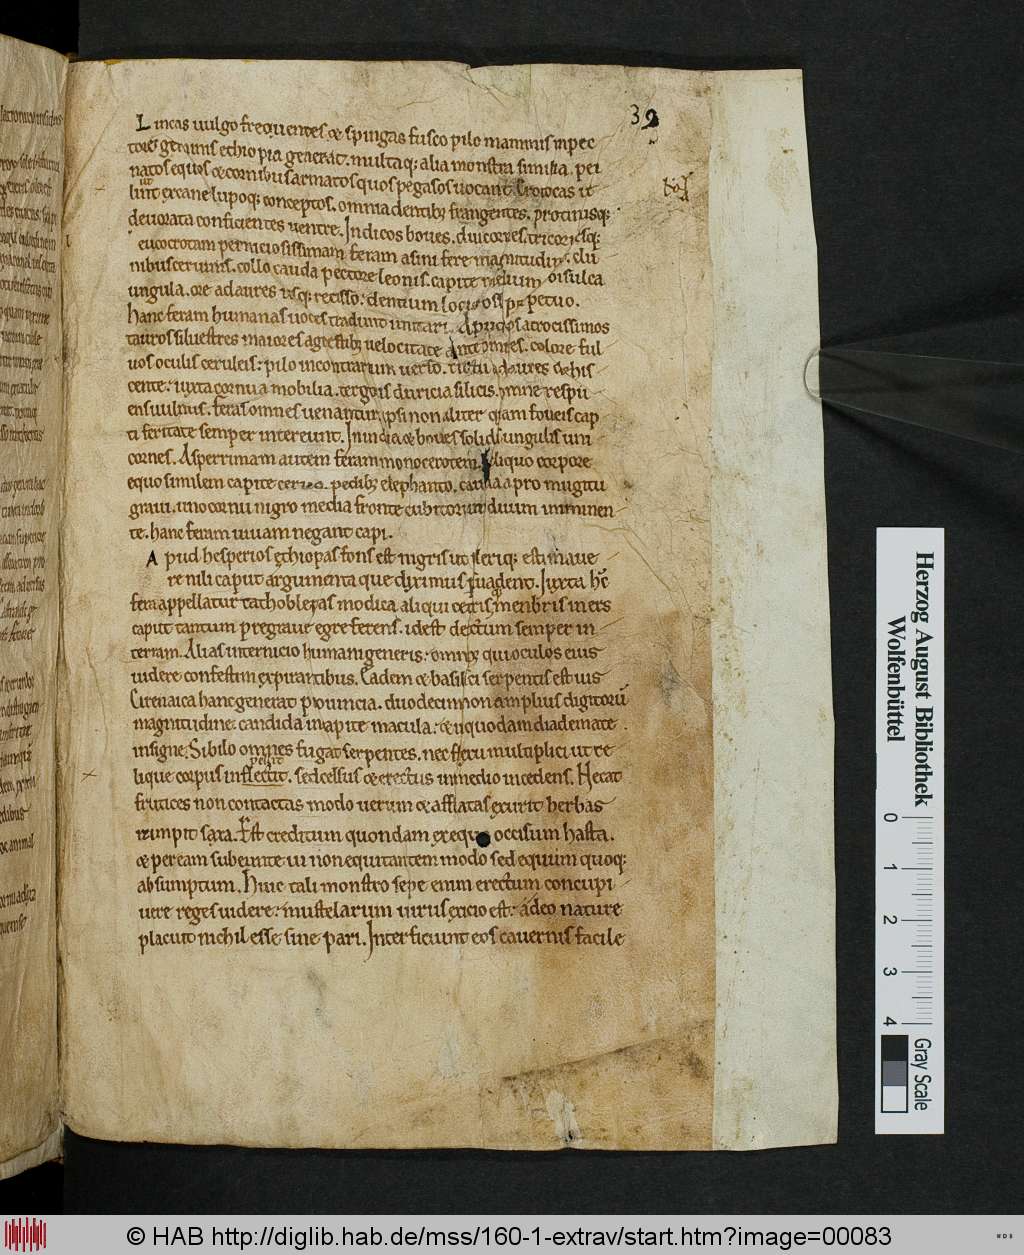 39
Lincas uulgo frequentes & spingas fusco pilo mammis inpec
tore geminis ethiopia generat. multaq; alia monstra similia. pen
natos equos & cornibus armatos quos pegasos uocant. Crocotas ut
lint excane lupoq; conceptos. omnia dentib; frangentes. protinusq;
deuorata conficientes uentre. Indicos boues. unicornes. tricornesq;
eucocrotam perniciosissimam feram asini fere magnitudine. clu
nibus ceruinis. collo cauda pectore leonis. capite melium bisulca
ungula. ore adaures usq; recisso; dentium loco osse perpetuo.
hanc feram humanas uoces tradunt imitari. Apud eos atrocissimos
tauros siluestres maiores agrestib; uelocitate ante omnes. colore ful
uos oculis ceruleis; pilo incontrarium uerso. rictu adaures dehis
cente; iuxta cornua mobilia. tergoris duricia silicis. omne respu
ens uulnus. feras omnes uenantur. ipsi non aliter quam foueis cap
ti feritate semper intereunt. In india & boues solidis ungulis uni
cornes. Asperrimam autem feram monocerotem. reliquo corpore
equo similem capite ceruo. pedib; elephanto. cauda apro mugitu
graui. uno cornu nigro media fronte cubitorum duum imminen
te. hanc feram uiuam negant capi.
Apud hesperios ethiopas fons est nigris ut plerisq; estimaue
re nili caput argumenta que diximus persuadent. Juxta hc
fera appellatur cathoblepas modica aliqui ceteris menbris iners
caput tantum pregraue egre ferens. id est deiectum semper in
terram. Alias internicio humani generis; omnib; qui oculos eius
uidere confestim expirantibus. Eadem & basilisci serpentis est uis
Cirenaica hanc generat prouincia. duodecim non amplius digitorũ
magnitudine; candida incapite macula; & ut quodam diademate
insigne; Sibilo omnes fugat serpentes. nec flexu multiplici ut re
lique corpus inflectit. sed celsus & erectus inmedio incedens. Necat
frutices non contactas modo uerum & afflatas exurit herbas
rumpit saxa. Est creditum quondam ex equo occisum hasta.
& per eam subeunte ui non equitantem modo sed equum quoq;
absumptum. Huic tali monstro sepe enim erectum concupi
uere reges uidere; mustelarum uirus exicio est; adeo nature
placuit nichil esse sine pari. Interficiunt eos cauernis facile
Herzog August Bibliothek
Wolfenbüttel
0 1 2 3 4
Gray Scale
© HAB http://diglib.hab.de/mss/160-1-extrav/start.htm?image=00083